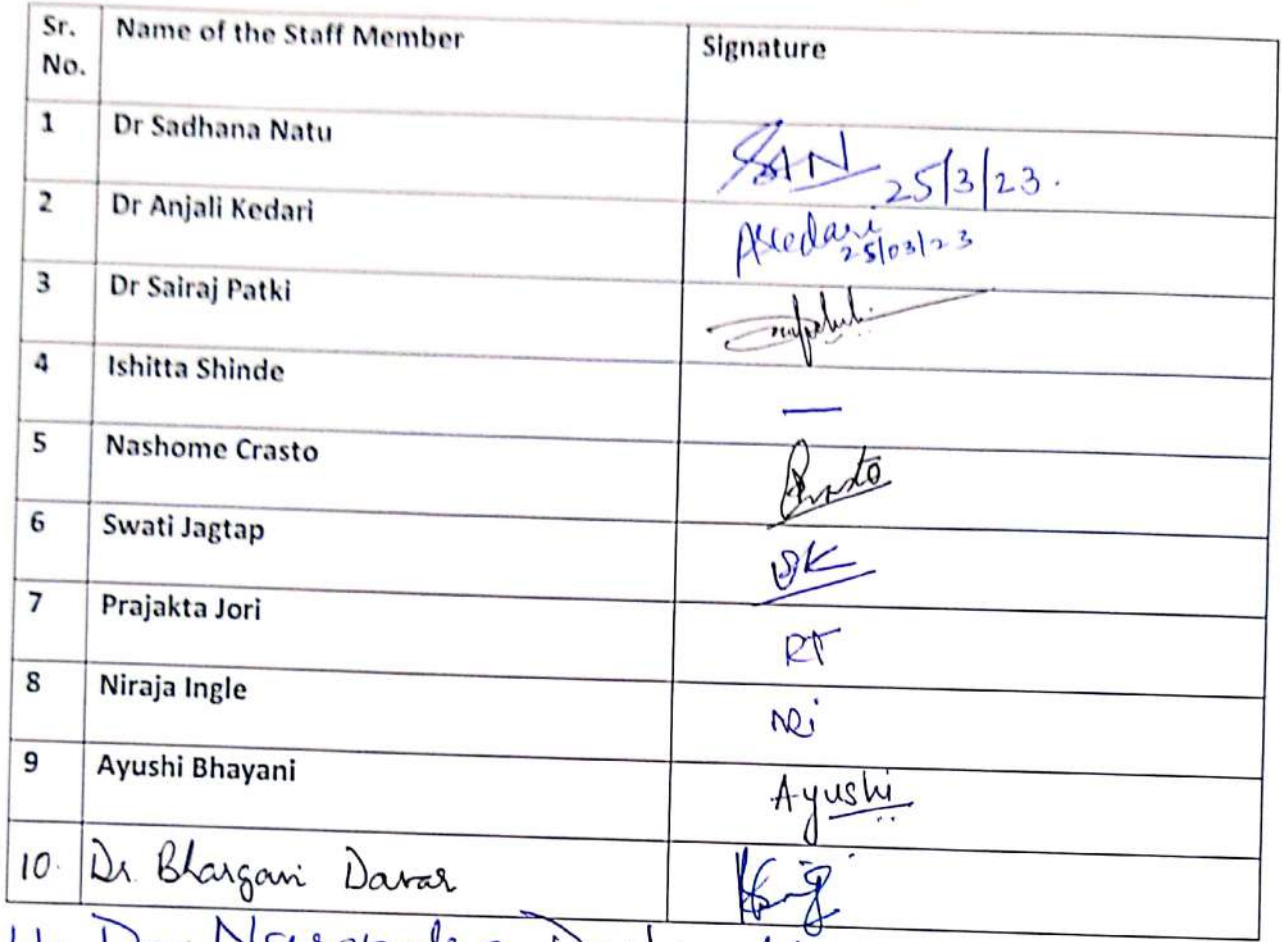 Sr. No. Name of the Staff Member Signature
1 Dr Sadhana Natu SAN 25/3/23.
2 Dr Anjali Kedari AKedari 25/03/23
3 Dr Sairaj Patki
4 Ishitta Shinde —
5 Nashome Crasto Crasto
6 Swati Jagtap SK
7 Prajakta Jori
8 Niraja Ingle
9 Ayushi Bhayani Ayushi
10. Dr. Bhargavi Davar